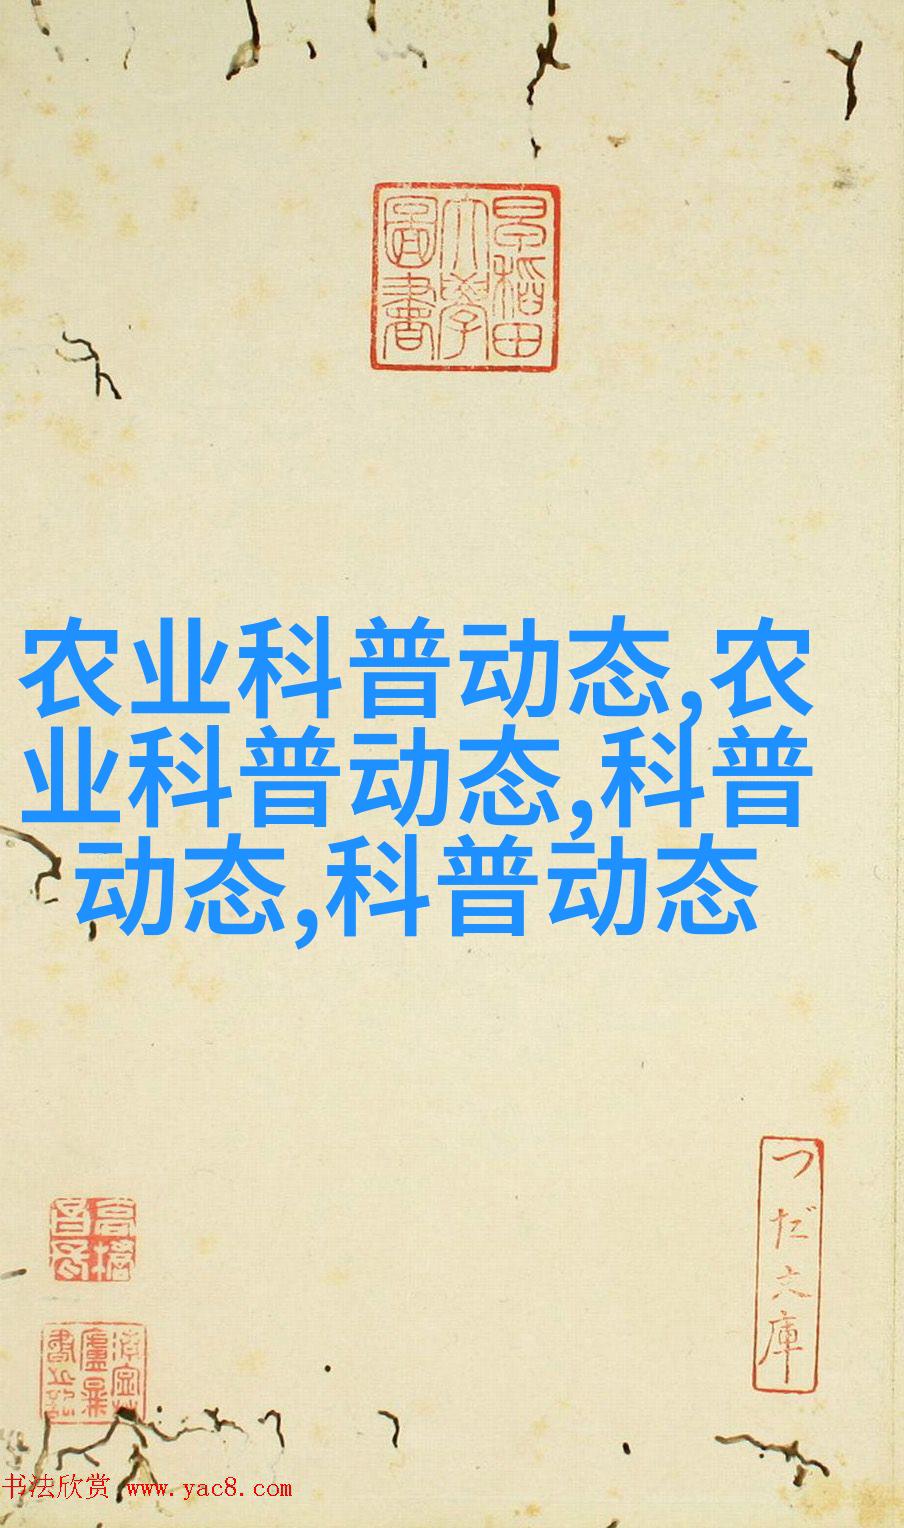 早稻田
大學
圖書
农业科普动态,农
业科普动态,科普
动态,科普动态
つだ文庫
书法欣赏 www.yac8.com